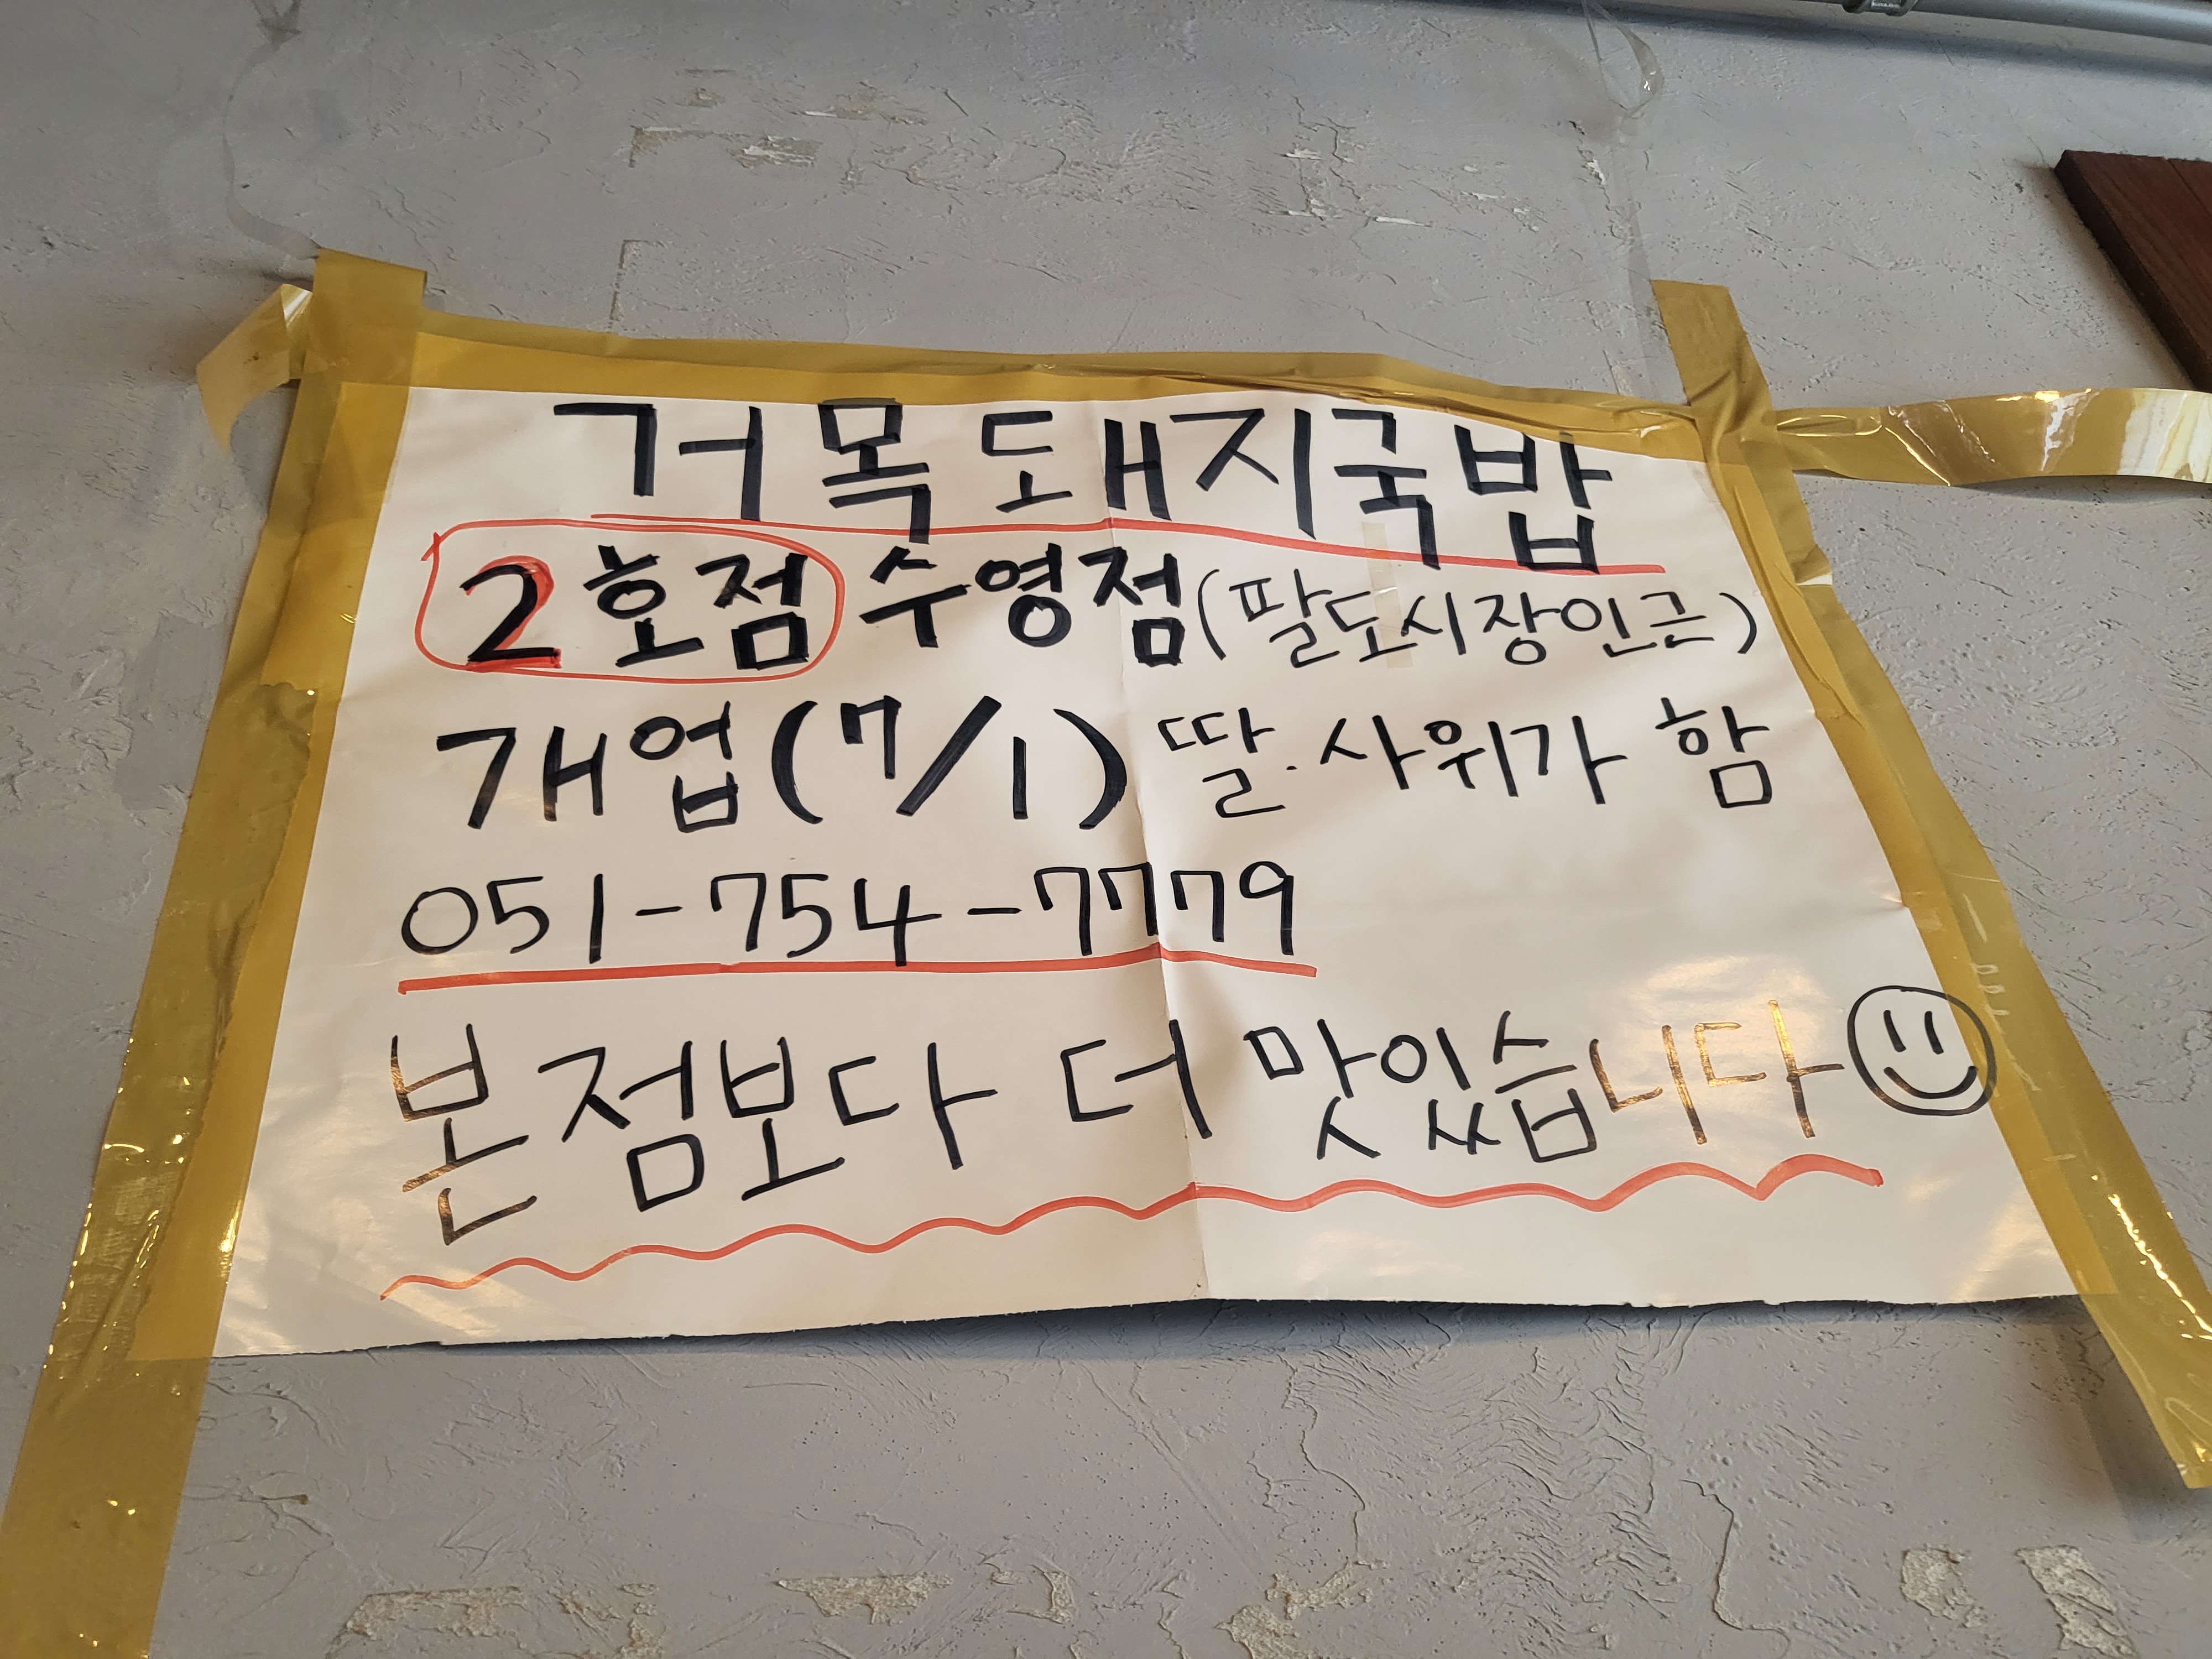 거목돼지국밥
2호점 수영점(팔도시장인근)
개업(7/1) 딸.사위가 함
051-754-7779
본점보다 더 맛있습니다